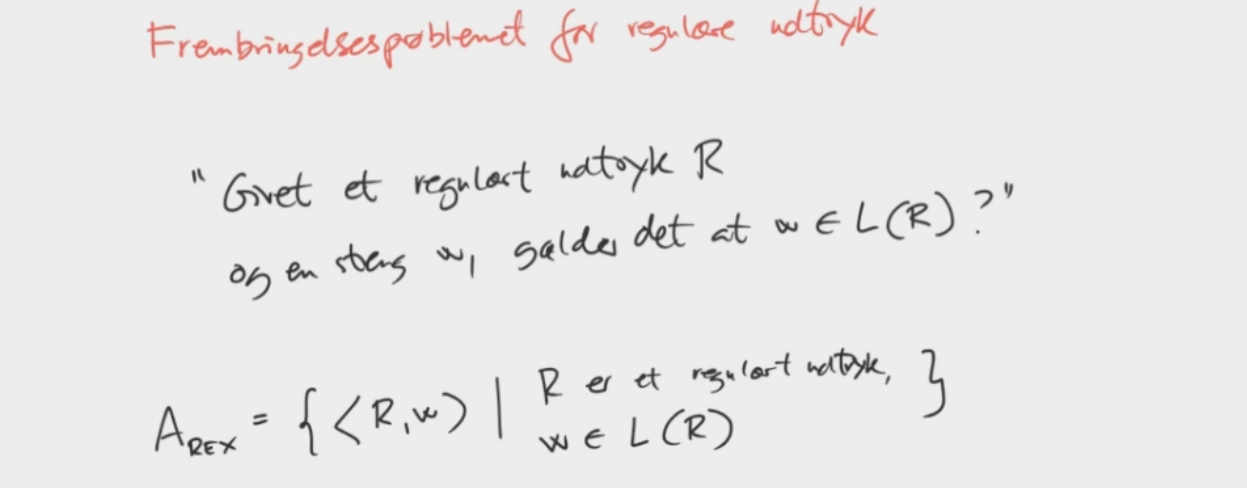 Frembringelsesproblemet for regulære udtryk
"Givet et regulært udtryk R
og en streng w, gælder det at w ∈ L(R)?"
A_REX = { ⟨R,w⟩ | R er et regulært udtryk, }
w ∈ L(R)